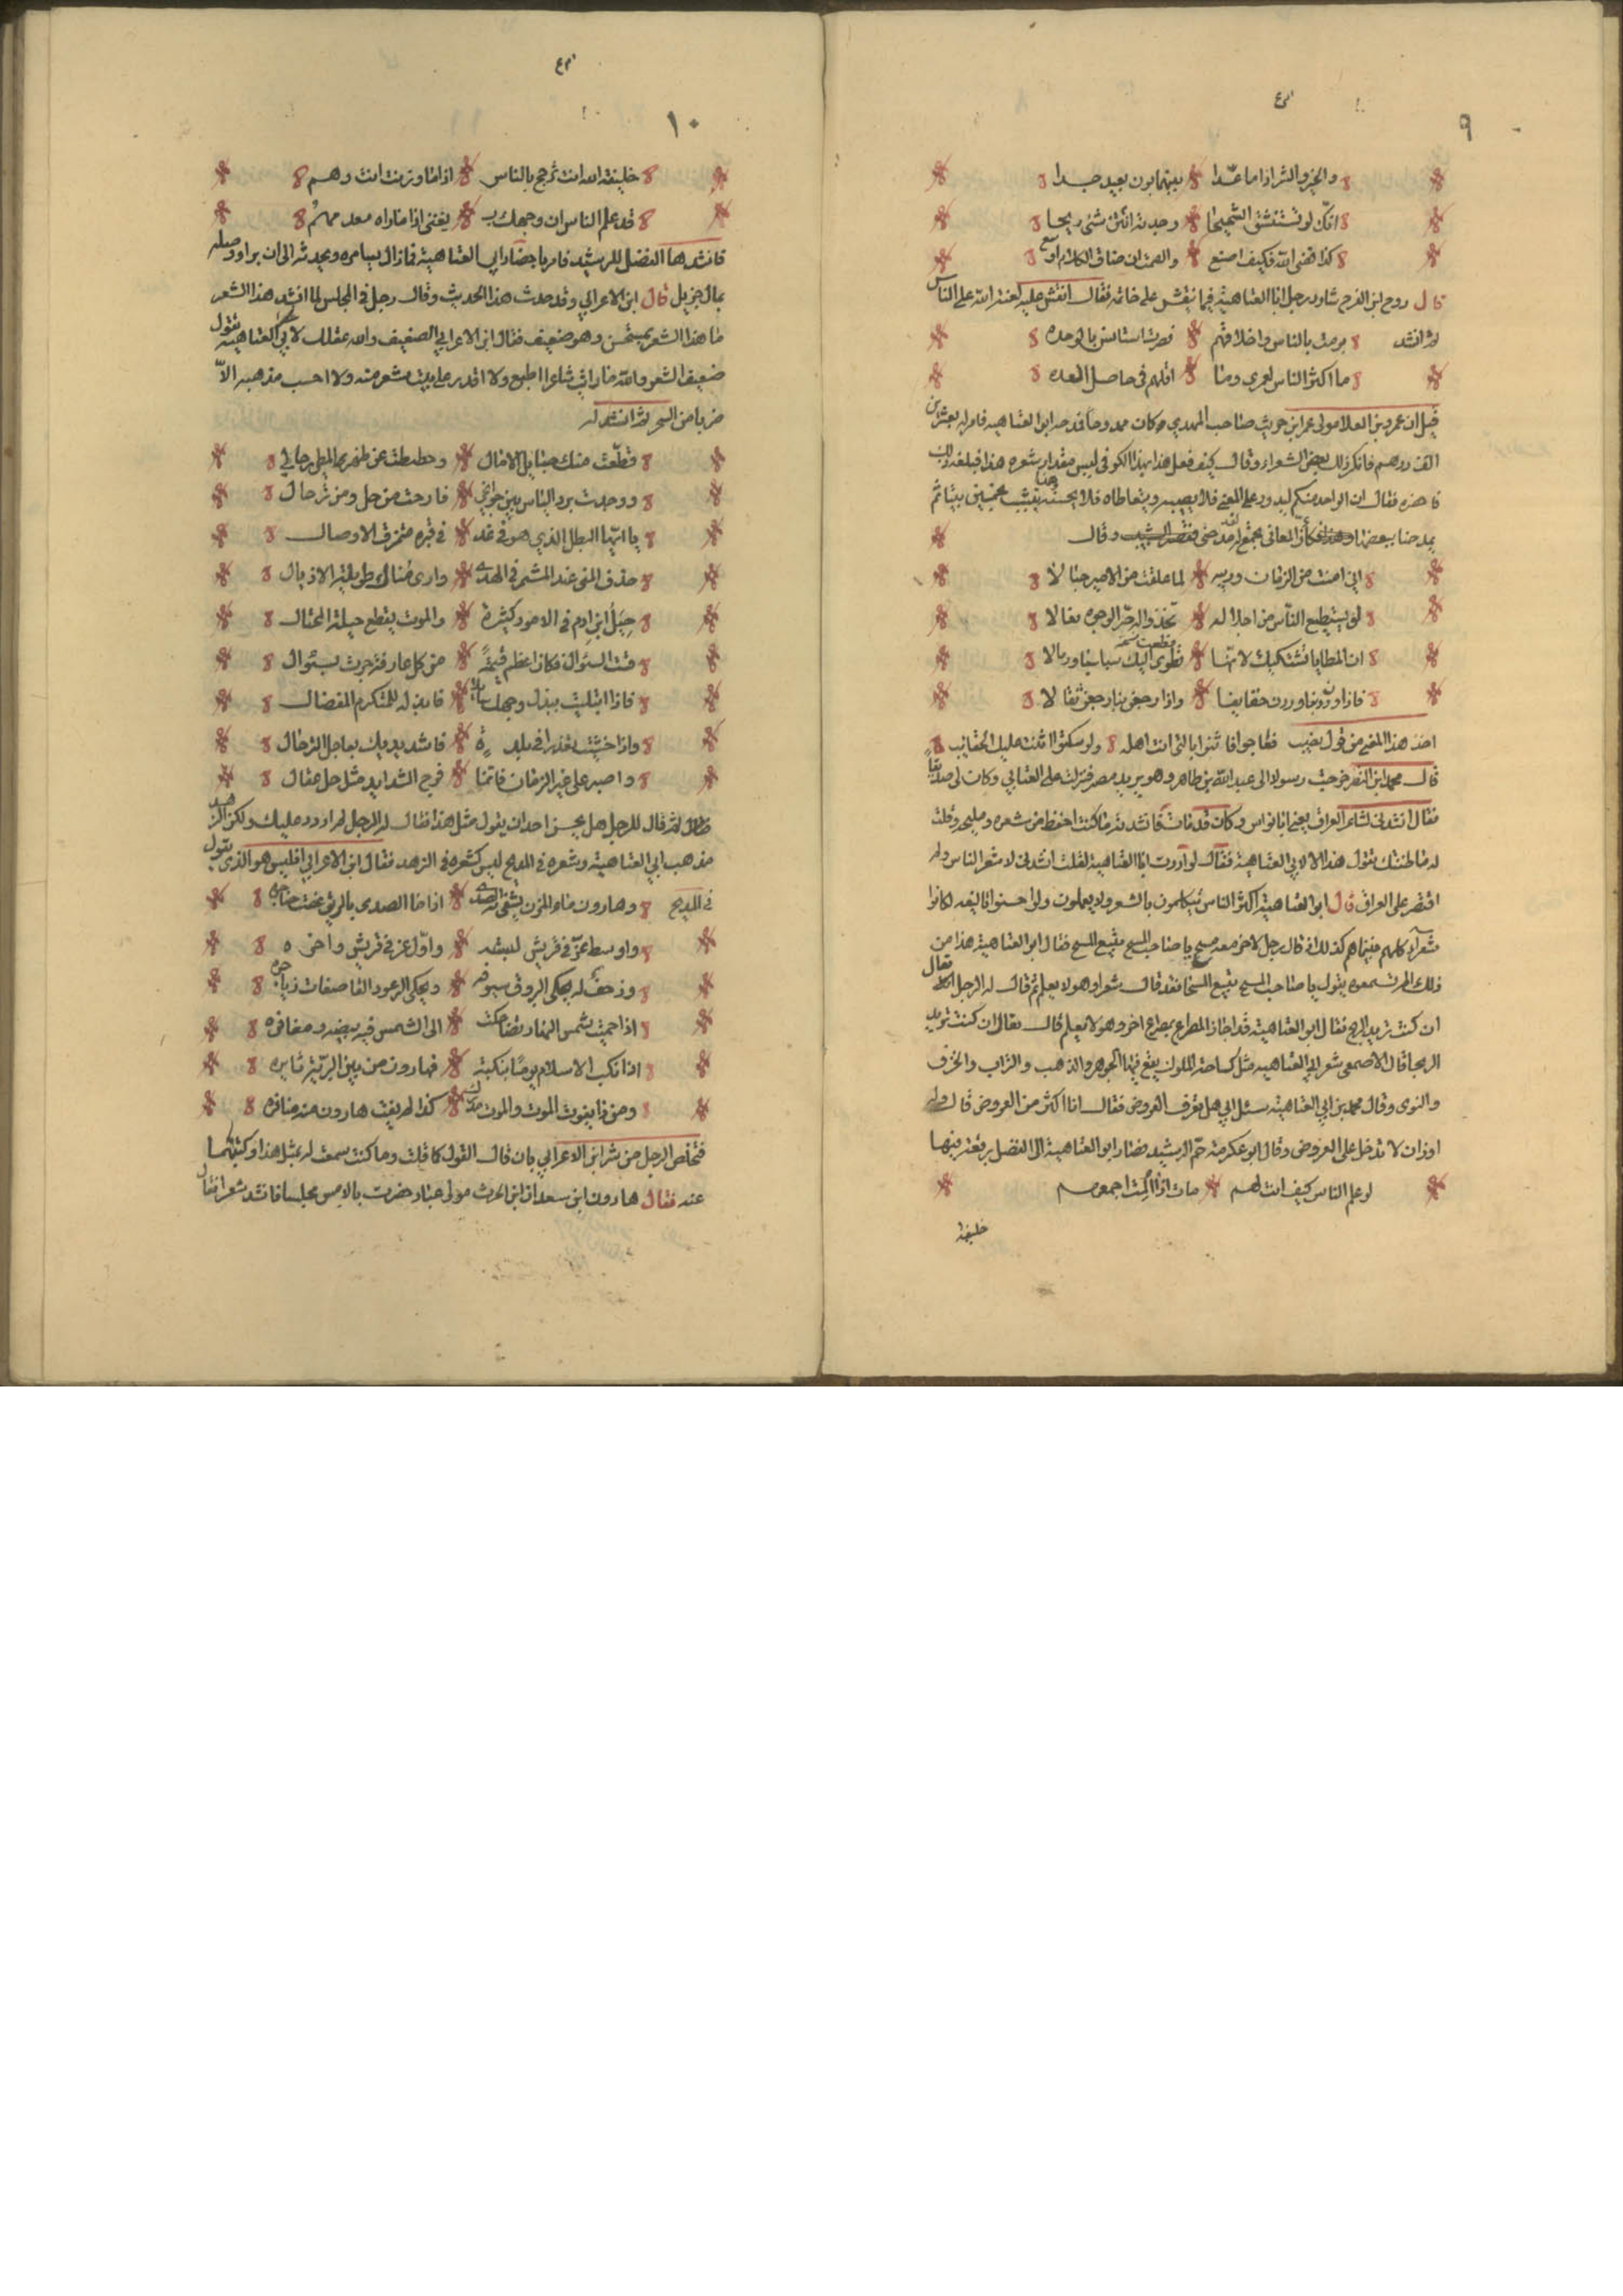 ٩
والخير والشر اذا ما عدا بينهما بون بعيد جدا
انك لو تستنشق الشحيحا وجدته انتن شئ ريحا
كذا قضى الله فكيف اصنع والصمت ان ضاق الكلام اوسع
قال روح ابن الفرج شاور رجل ابا العتاهية فيما ينقش على خاتمه فقال انقش عليه لعنة الله على الناس
ثم انشد برمت بالناس واخلاقهم فصرت استانس بالوحده
ما اكثر الناس لعمري وما اقلهم في حاصل العده
قيل ان عمرو بن العلا مولى عمر ابن حريث صاحب المهدي وكان ممدوحا فمدحه ابو العتاهيه فامر له بعشرين
الف درهم فانكر ذلك بعض الشعراء وقال كيف فعل هذا بهذا الكوفي ليس مقدار شعره هذا فبلغه ذلك
فاحضره فقال ان الواحد منكم ليدور على المعنى فلا يصيبه ويتعاطاه فلا يحسنه يشبب بخمسين بيتا ثم
يمدحنا ببعضها وهذا كأن المعاني تجمع له مدحني فقصر التشبيب وقال
اني امنت من الزمان وريبه لما علقت من الامير حبالا
لو يستطيع الناس من اجلاله تخذوا له حر الوجوه نعالا
ان المطايا تشتكيك لانها قطعت اليك سباسبا ورمالا
فاذا وردن بنا وردن خفايفا واذا رجعن بنا رجعن ثقالا
اخذ هذا المعنى من قول نصيب فعاجوا فاثنوا بالذي انت اهله ولو سكتوا اثنت عليك الحقائب
قال محمد ابن النضر خرجت رسولا الى عبد الله بن طاهر وهو يريد مصر فنزلت على العتابي وكان لي صديقاً
فقال انشدني لشاعر العراق يعني ابا نواس وكان قد مات فانشدته ما كنت احفظ من شعره ومليحه وقلت
له ما ظننتك تقول هذا الا لابي العتاهية فقال لو اردت ابا العتاهية لقلت انشدني لاشعر الناس ولم
اقتصر على العراق قال ابو العتاهية اكثر الناس يتكلمون بالشعر ولا يعلمون ولو احسنوا تاليفه لكانوا
شعرآء كلهم فبينما هم كذلك اذ قال رجل لاخر معه مسح يا صاحب المسح تبيع المسح فقال ابو العتاهية هذا من
ذلك الم تسمعوه يقول يا صاحب المسح تبيع المسحا فقد قال شعرا وهو لا يعلم ثم قال له الرجل تعال
ان كنت تريد الربح فقال ابو العتاهية قد اجاز المصراع بمصراع اخر وهو لا يعلم قال تعال ان كنت تريد
الربحا قال الاصمعي شعر ابي العتاهيه مثل كساحة الملوك يقع فيها الجوهر والذهب والتراب والخزف
والنوى وقال محمد بن ابي العتاهية سئل ابي هل تعرف العروض فقال انا اكثر من العروض قال وله
اوزان لا تدخل على العروض وقال ابو عكرمة حم الرشيد فصار ابو العتاهية الى الفضل برقعة فيها
لو علم الناس كيف انت لهم مات اذا الت اجمعهم
خليفة
١٠
خليفة الله انت ترجح بالناس اذا ما وزنت انت وهم
قد علم الناس ان وجهك يغني اذا ما راه معدمهم
فانشدها الفضل للرشيد فامر باحضار ابي العتاهية فما زال يسامره ويحدثه الى ان برا ووصله
بمال جزيل قال ابن الاعرابي وقد حدث هذا الحديث وقال رجل في المجلس لما انشد هذا الشعر
ما هذا الشعر بمستحسن وهو ضعيف فقال ابن الاعرابي الضعيف والله عقلك لابي العتاهية تقول
ضعيف الشعر والله ما رايت شاعرا اطبع ولا اقدر على بيت شعر منه ولا احسب مذهبه الاّ
ضربا من السحر ثم انشد له
قطّعت منك حبايل الامال وحططت عن ظهر المطي رحالي
ووجدت برد الياس بين جوانحي فارحت من حل ومن ترحال
يا ايها البطل الذي هو في غد في قبره متمزق الاوصال
حذف المنى عند المشمر في الهدى وارى مناك طويلة الاذيال
حيل ابن ادم في الامور كثيرة والموت يقطع حيلة المحتال
قست السؤال فكان اعظم قيمة من كل عارفة جرت بسؤال
فاذا ابتليت ببذل وجهك سائلا فابذله للمتكرم المفضال
واذا خشيت تعذرا في بلدة فاشدد يديك بعاجل الترحال
واصبر على غير الزمان فانما فرج الشدايد مثل حل عقال
ثم قال للرجل هل يحسن احد ان يقول مثل هذا فقال له الرجل لم اردد عليك ولكن الزهد
مذهب ابي العتاهية وشعره في المديح ليس كشعره في الزهد فقال ابن الاعرابي افليس هو الذي يقول
في المديح وهارون ماء المزن يشفى به الصدى اذا ما الصدى بالريق غصت حناجره
واوسط عز في قريش لبيته واول عز في قريش واخره
وزحف له يحكي البروق سيوفه ويحكي الرعود القاصفات زياجره
اذا حميت شمس النهار تضاحكت الى الشمس فيه بيضه ومغافره
اذا نكب الاسلام يوما بنكبة فهارون من بين البرية ثايره
ومن ذا يفوت الموت والموت مدرك كذا لم يفت هارون منه منافره
فتخلص الرجل من شر ابن الاعرابي بان قال القول كما قلت وما كنت سمعت له بمثل هذا وكتبتهما
عنه فقال هارون ابن سعدان ابن الحرث مولى عباد حضرت بالامس مجلسا فانشد شعرا فقال